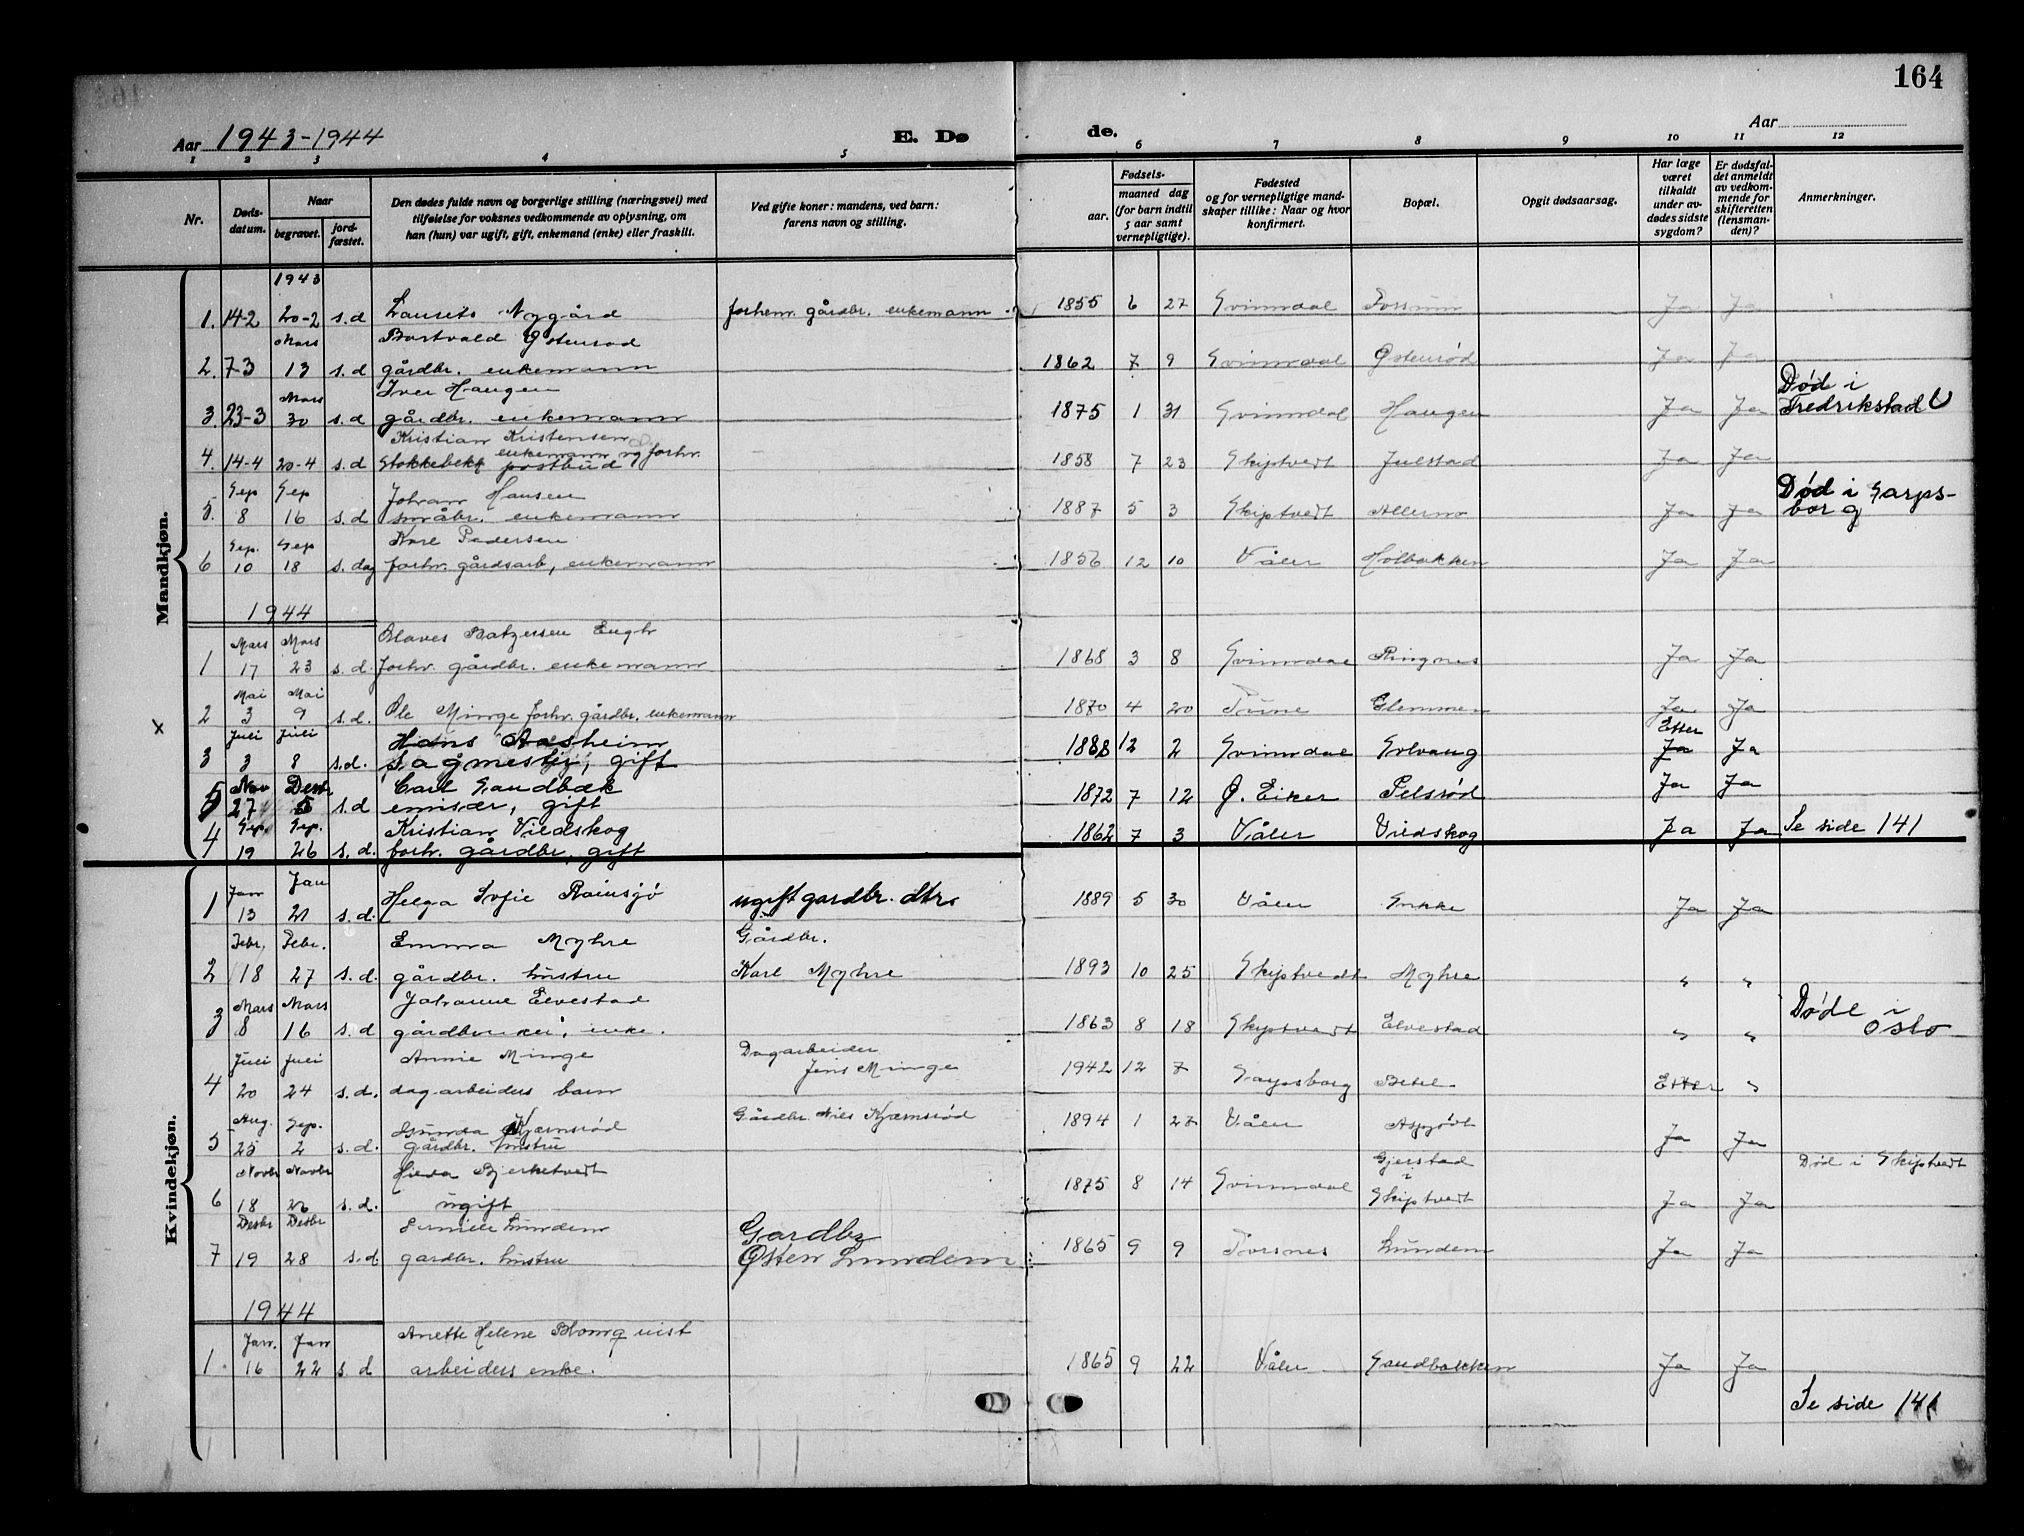 164
Aar 1943-1944
E. Dø
de.
Aar
1 2 3 4 5 6 7 8 9 10 11 12
Nr.
Døds-
datum.
Naar
begravet.
jord-
fæstet.
Den dødes fulde navn og borgerlige stilling (næringsvei) med
tilføielse for voksnes vedkommende av oplysning, om
han (hun) var ugift, gift, enkemand (enke) eller fraskilt.
Ved gifte koner: mandens, ved barn:
farens navn og stilling.
Fødsels-
aar.
maaned dag
(for barn indtil
5 aar samt
vernepligtige).
Fødested
og for vernepligtige mand-
skaper tillike: Naar og hvor
konfirmert.
Bopæl.
Opgit dødsaarsag.
Har læge
været
tilkaldt
under av-
dødes sidste
sygdom?
Er dødsfal-
det anmeldt
av vedkom-
mende for
skifteretten
(lensman-
den)?
Anmerkninger.
Mandkjøn.
1943
1. 14-2 20-2 s.d Laurits Nygård forhenv. gårdbr. enkemann 1855 6 27 Svinndal Fossum Ja Ja
Mars Bortvald Østensrød
2. 7-3 13 s.d gårdbr. enkemann 1862 7 9 Svinndal Østensrød Ja Ja
Mars Iver Haugen Død i
3. 23-3 30 s.d gårdbr. enkemann 1875 1 31 Svinndal Haugen Ja Ja Fredrikstad
Kristian Kristensen
enkemann og forhv.
4. 14-4 20-4 s.d Stokkebekk postbud 1858 7 23 Skiptvedt Julstad Ja Ja
Sep Sep Johan Hansen Død i Sarps-
5. 8 16 s.d småbr. enkemann 1887 5 3 Skiptvedt Ja Ja borg
Sep. Sep Karl Pedersen
6 10 18 s.dag forhv. gårdsarb, enkemann 1856 12 10 Våler Holbakken Ja Ja
1944
Mars Mars Olaves Engh
1 17 23 s.d. forhv. gårdbr. enkemann 1868 3 8 Svinndal Ringnes Ja Ja
Mai Mai
2 3 9 s.d. Ole Minge forhv. gårdbr. enkemann 1870 4 20 Tune Glemmen Ja Ja
x
Juli Juli Hans Aasheim Etter
3 3 8 s.d. sagmester, gift 1888 12 2 Svinndal Solvang Ja Ja
Nov Desbr Carl Sandbæk
5 27 5 s.d emisær, gift 1872 7 12 Ø. Eiker Pelsrød Ja Ja
Sep. Sep. Kristian Vildskog
4 19 26 s.d. forhv. gårdbr, gift 1862 7 3 Våler Vildskog Ja Ja Se side 141
Kvindekjøn.
Jan Jan
1 13 21 s.d. Helga Sofie Ramsjø ugift gardbr. dtr. 1889 5 30 Våler Ja Ja
Febr. Febr. Emma Myhre Gårdbr.
2 18 27 s.d. gårdbr. hustru Karl Myhre 1893 10 25 Skiptvedt Myhre " "
Mars Mars Johanne Elvestad Døde i
3 8 16 s.d gårdbruker, enke. 1863 8 18 Skiptvedt Elvestad " " Oslo
Juli Juli Annie Minge Dagarbeider
4 20 24 s.d. dagarbeiders barn Jens Minge 1942 12 7 Sarpsborg Betel Etter "
Aug. Sep. Gunda Kjærnsrød Gårdbr. Nils Kjærnsrød
5 25 2 s.d. gårdbr. hustru 1894 1 27 Våler Ja Ja
Novbr Novbr Bjerketvedt Gjerstad Død i Skiptvedt
6 18 26 s.d. ugift 1875 8 14 Svinndal i Skiptvedt Ja Ja
Desbr Desbr Lundem Gardbr
7 19 28 s.d gardbr. hustru Østen Lundem 1865 9 9 Torsnes Lundem Ja Ja
1944
Jan. Jan Anette Helene Blomquist
1. 16 22 s.d arbeiders enke. 1865 9 22 Våler Sandbakken Ja Ja
Se side 141